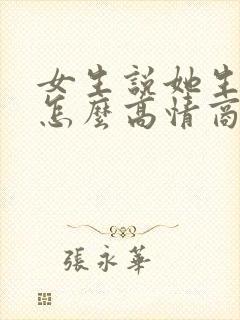 女生說她生
怎麼高情商
張永華